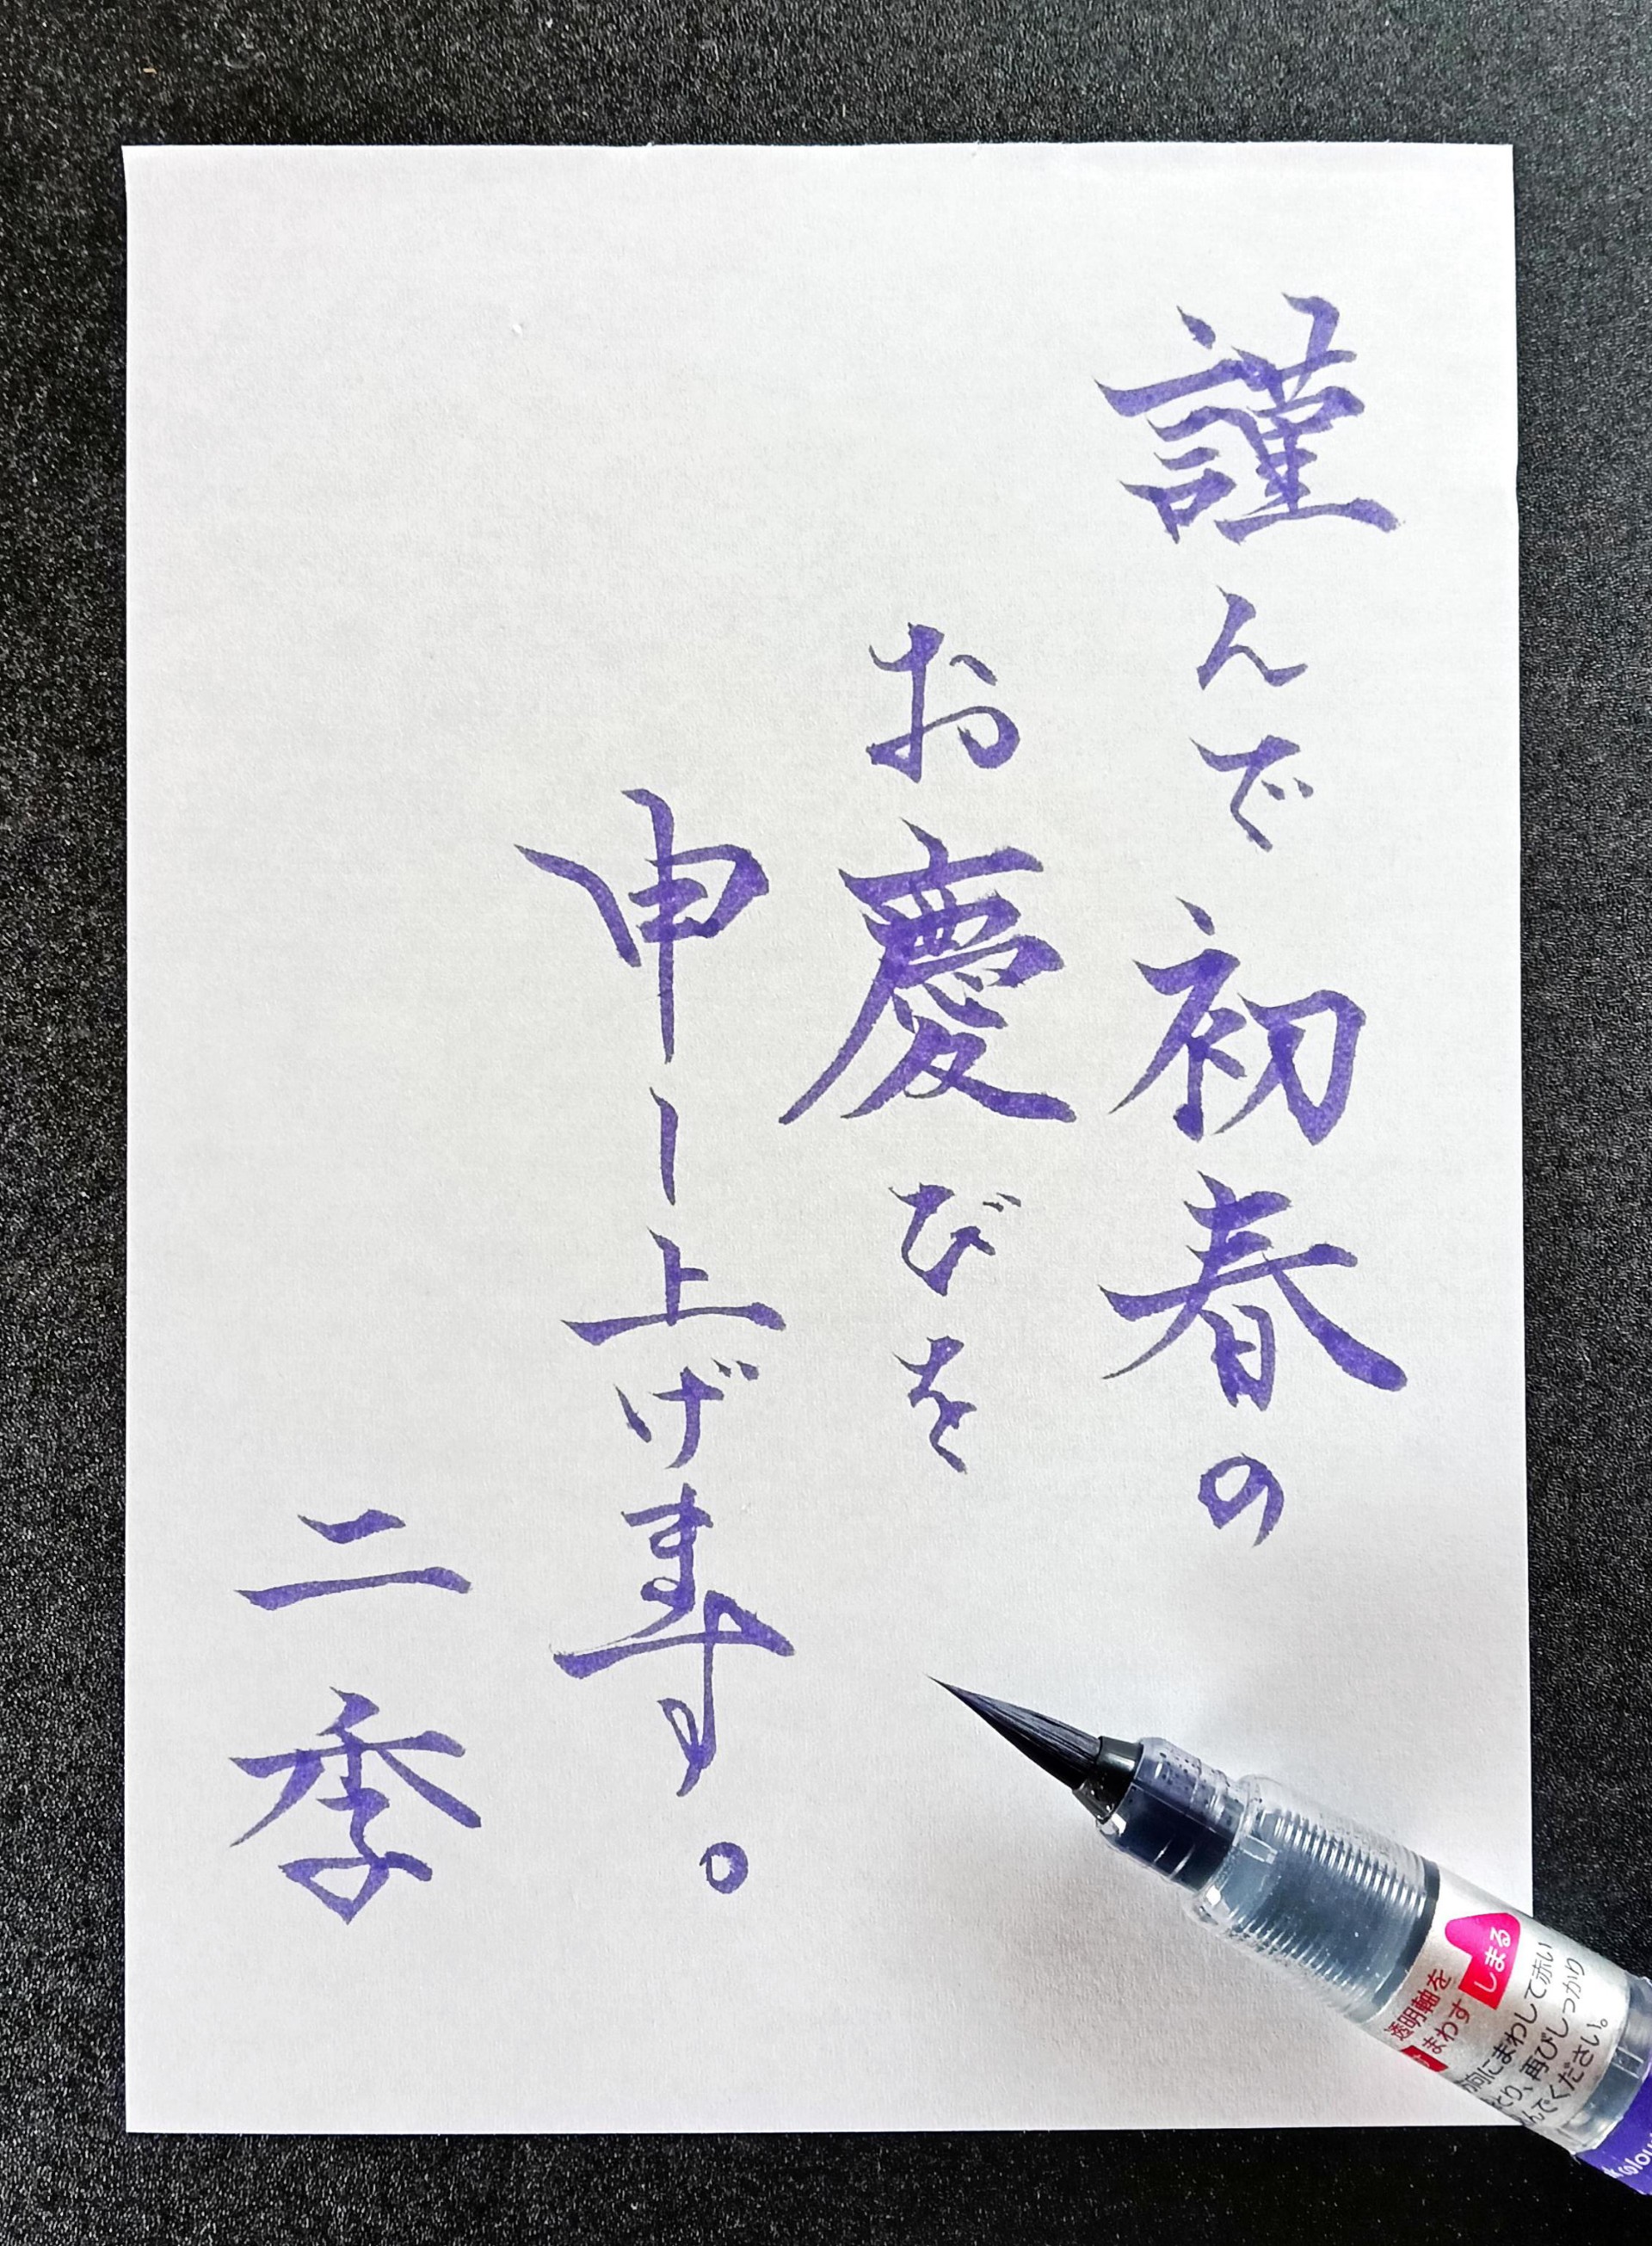 謹んで初春の
お慶びを
申し上げます。
二季
しまる
透明軸を
まわす
方向にまわして赤い
とり、再びしっかり
んでください。